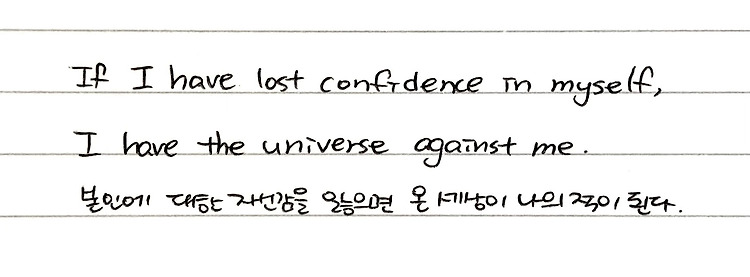 If I have lost confidence in myself,
I have the universe against me.
본인에 대한 자신감을 잃으면 온 세상이 나의 적이 된다.